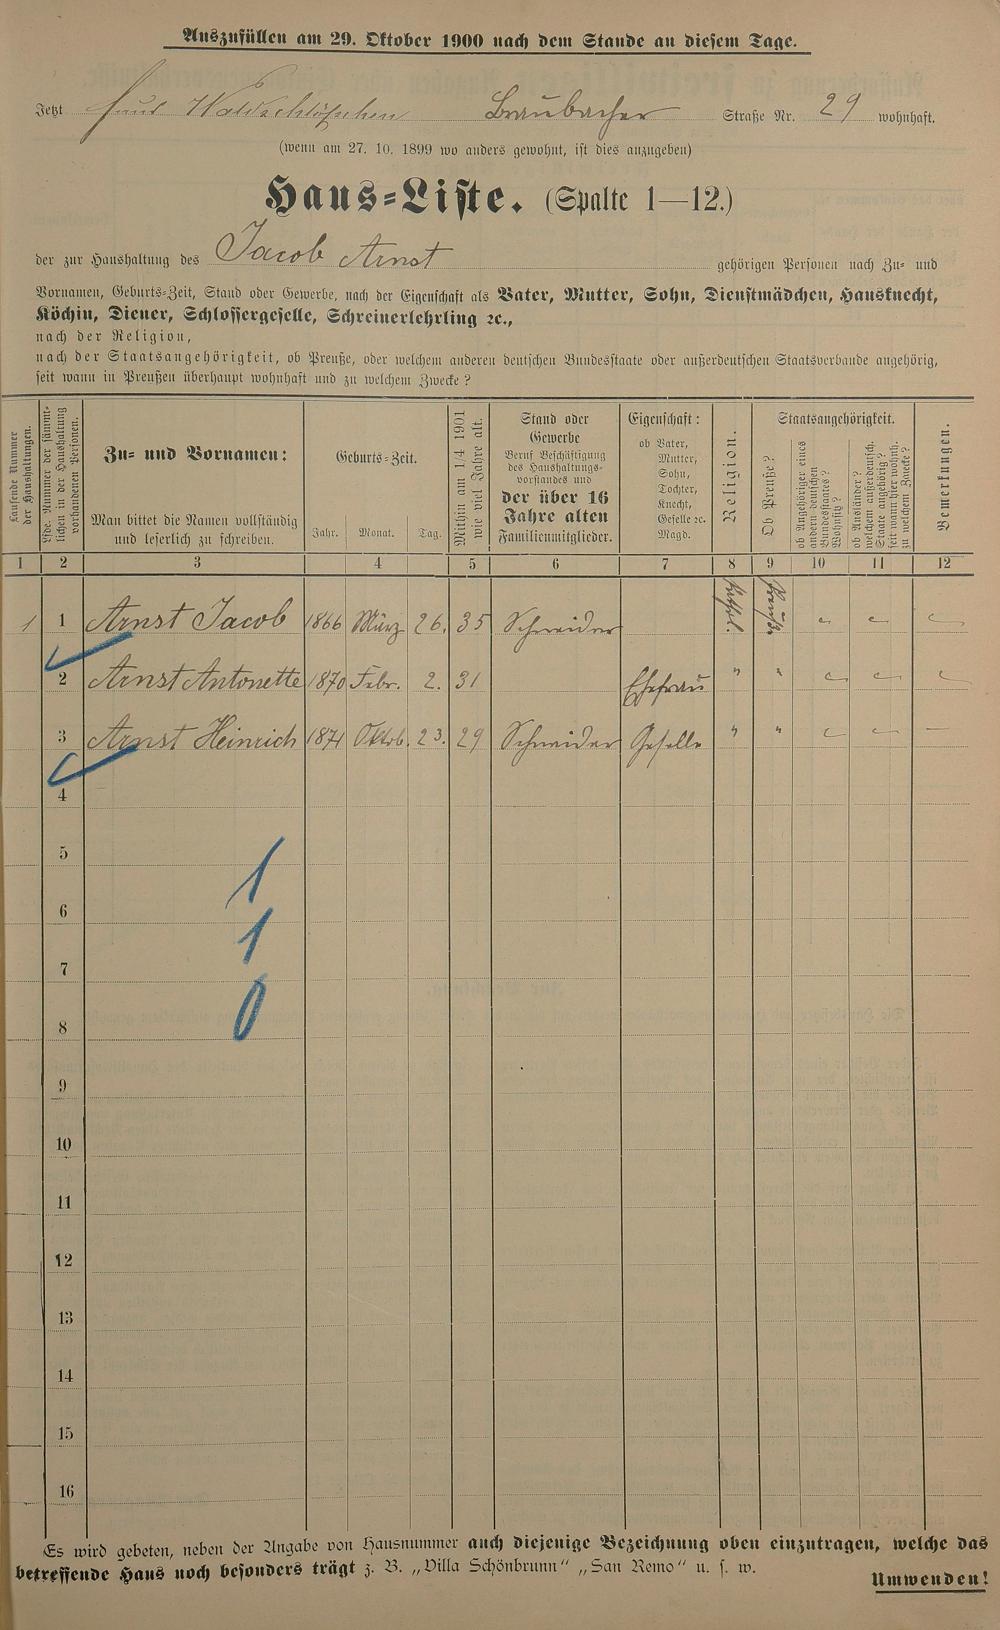 Auszufüllen am 29. Oktober 1900 nach dem Stande an diesem Tage.
Jetzt Haus Waldschlößchen Braubacher Straße Nr. 29 wohnhaft.
(wenn am 27. 10. 1899 wo anders gewohnt, ist dies anzugeben)
Haus-Liste. (Spalte 1—12.)
der zur Haushaltung des Jacob Arnst gehörigen Personen nach Zu- und
Vornamen, Geburts-Zeit, Stand oder Gewerbe, nach der Eigenschaft als Vater, Mutter, Sohn, Dienstmädchen, Hausknecht,
Köchin, Diener, Schlossergeselle, Schreinerlehrling ꝛc.,
nach der Religion,
nach der Staatsangehörigkeit, ob Preuße, oder welchem anderen deutschen Bundesstaate oder außerdeutschen Staatsverbande angehörig,
seit wann in Preußen überhaupt wohnhaft und zu welchem Zwecke?
Laufende Nummer
der Haushaltungen.
Lfde. Nummer der sämmt-
lichen in der Haushaltung
vorhandenen Personen.
Zu- und Vornamen:
Man bittet die Namen vollständig
und leserlich zu schreiben.
Geburts-Zeit.
Jahr. Monat. Tag.
Mithin am 1/4 1901
wie viel Jahre alt.
Stand oder
Gewerbe
Beruf Beschäftigung
des Haushaltungs-
vorstandes und
der über 16
Jahre alten
Familienmitglieder.
Eigenschaft:
ob Vater,
Mutter,
Sohn,
Tochter,
Knecht,
Geselle ꝛc.
Magd.
Religion.
Staatsangehörigkeit.
Ob Preuße?
ob Angehöriger eines
andern deutschen
Bundesstaates?
Wohnsitz?
ob Ausländer?
welchem außerdeutsch.
Staate angehörig?
seit wann hier wohnh.
zu welchem Zwecke?
Bemerkungen.
1 2 3 4 5 6 7 8 9 10 11 12
1 1 Arnst Jacob 1866 März 26. 35 Schneider Kathol. Preuße
2 Arnst Antonette 1870 Febr. 2. 31 Ehefrau " "
3 Arnst Heinrich 1871 Oktob. 23. 29 Schneider Geselle " "
4
5
1
6
1
7
0
8
9
10
11
12
13
14
15
16
Es wird gebeten, neben der Angabe von Hausnummer auch diejenige Bezeichnung oben einzutragen, welche das
betreffende Haus noch besonders trägt z. B. „Villa Schönbrunn“ „San Remo“ u. s. w.
Umwenden!